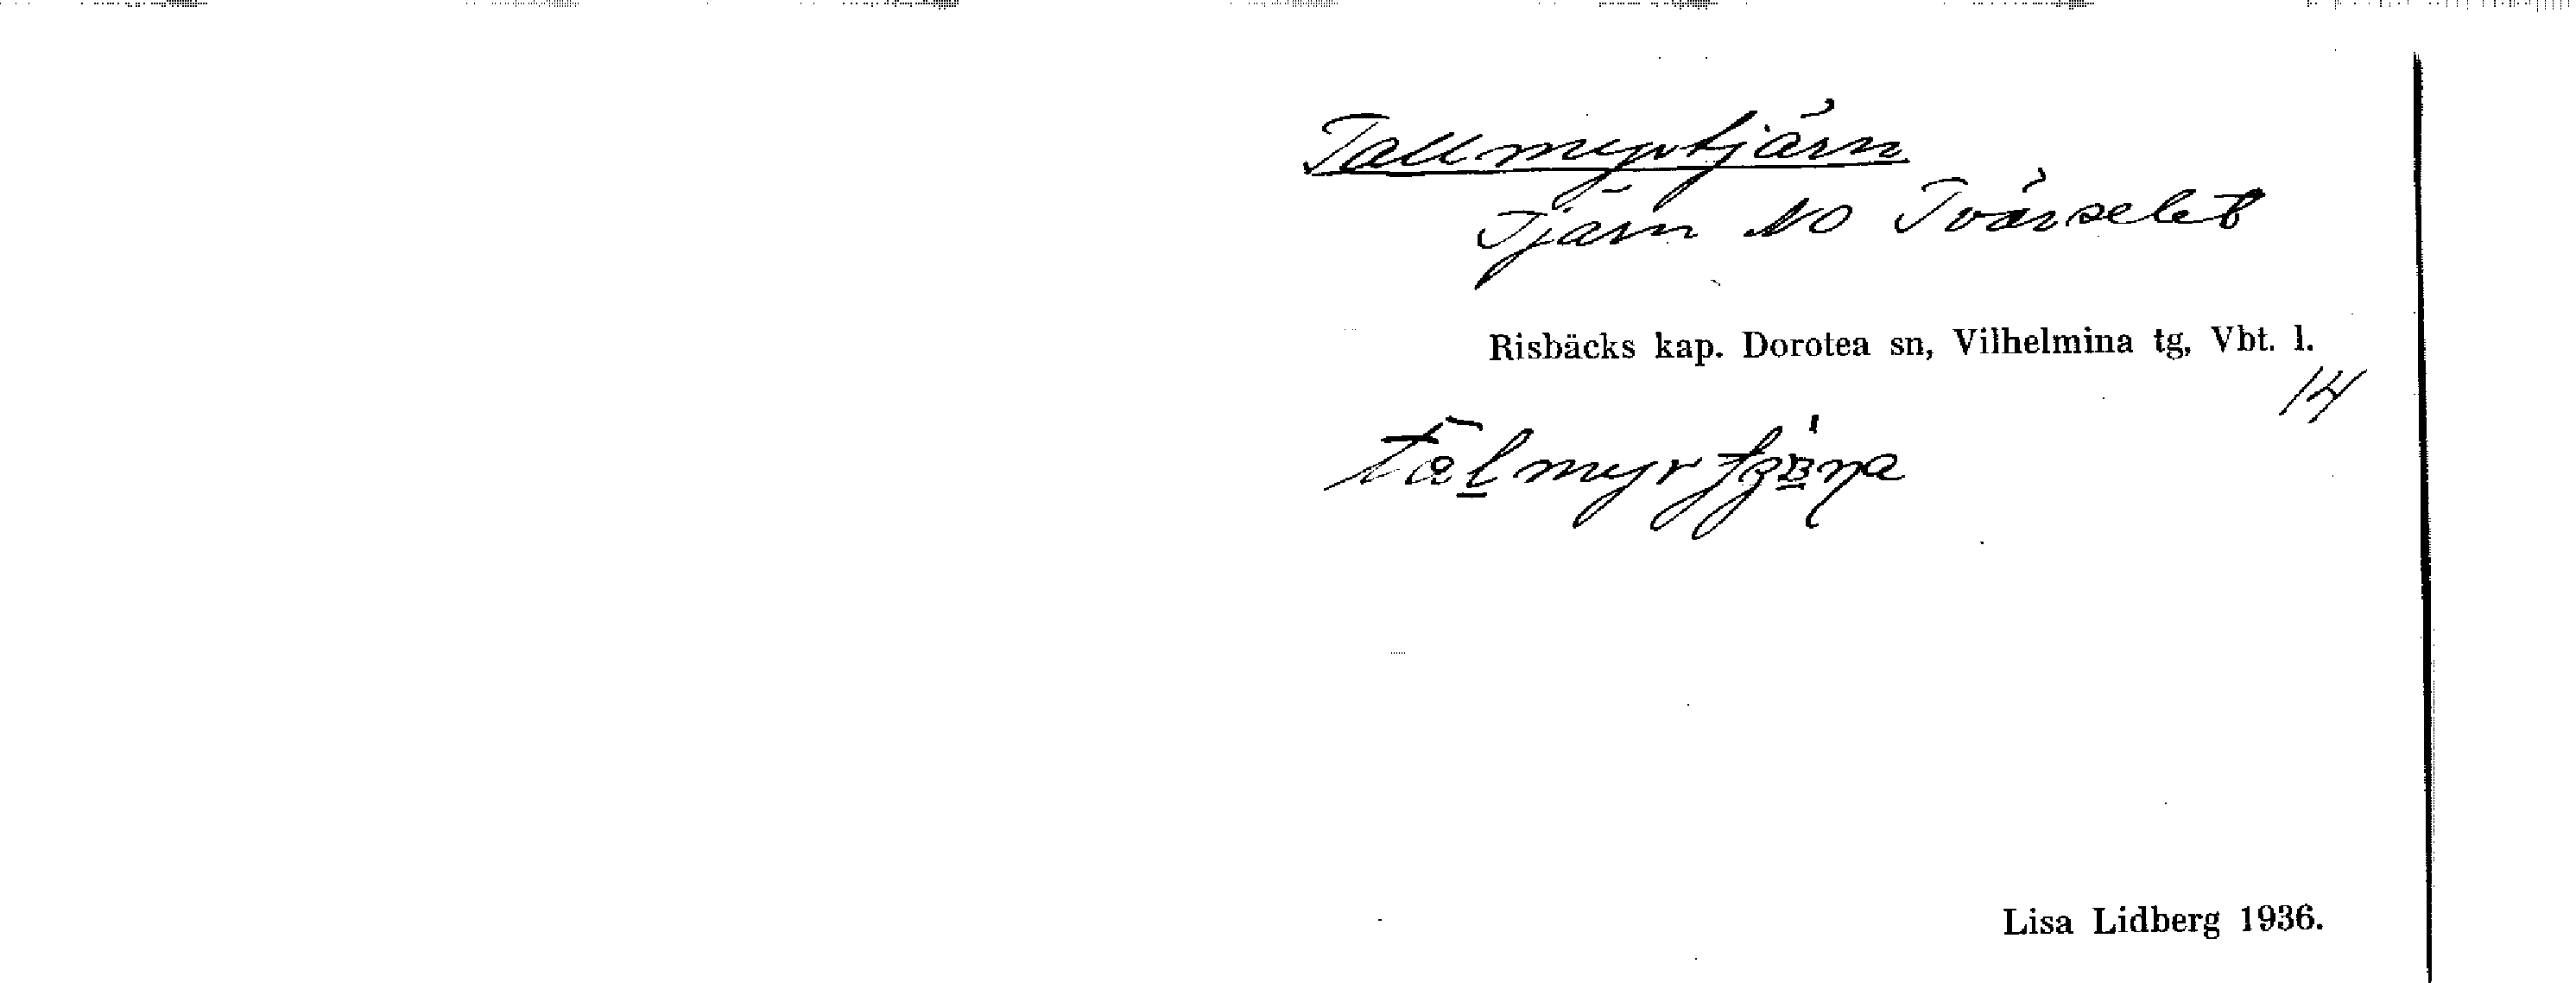 Tallmyrtjärn
Tjärn NO Tvärselet
Risbäcks kap. Dorotea sn, Vilhelmina tg, Vbt. l.
14
Lisa Lidberg 1936.